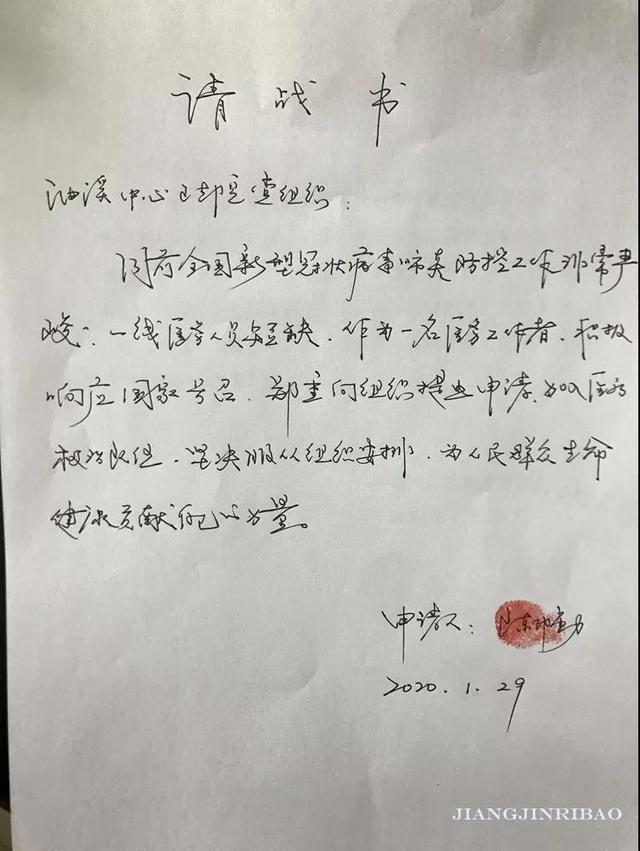 请战书
油溪中心卫生院党组织：
目前全国新型冠状病毒肺炎防控工作非常严
峻，一线医务人员短缺，作为一名医务工作者，积极
响应国家号召，郑重向组织提出申请，加入医疗
救治队伍，坚决服从组织安排，为人民群众生命
健康贡献自己的力量。
申请人：
2020.1.29
JIANGJINRIBAO